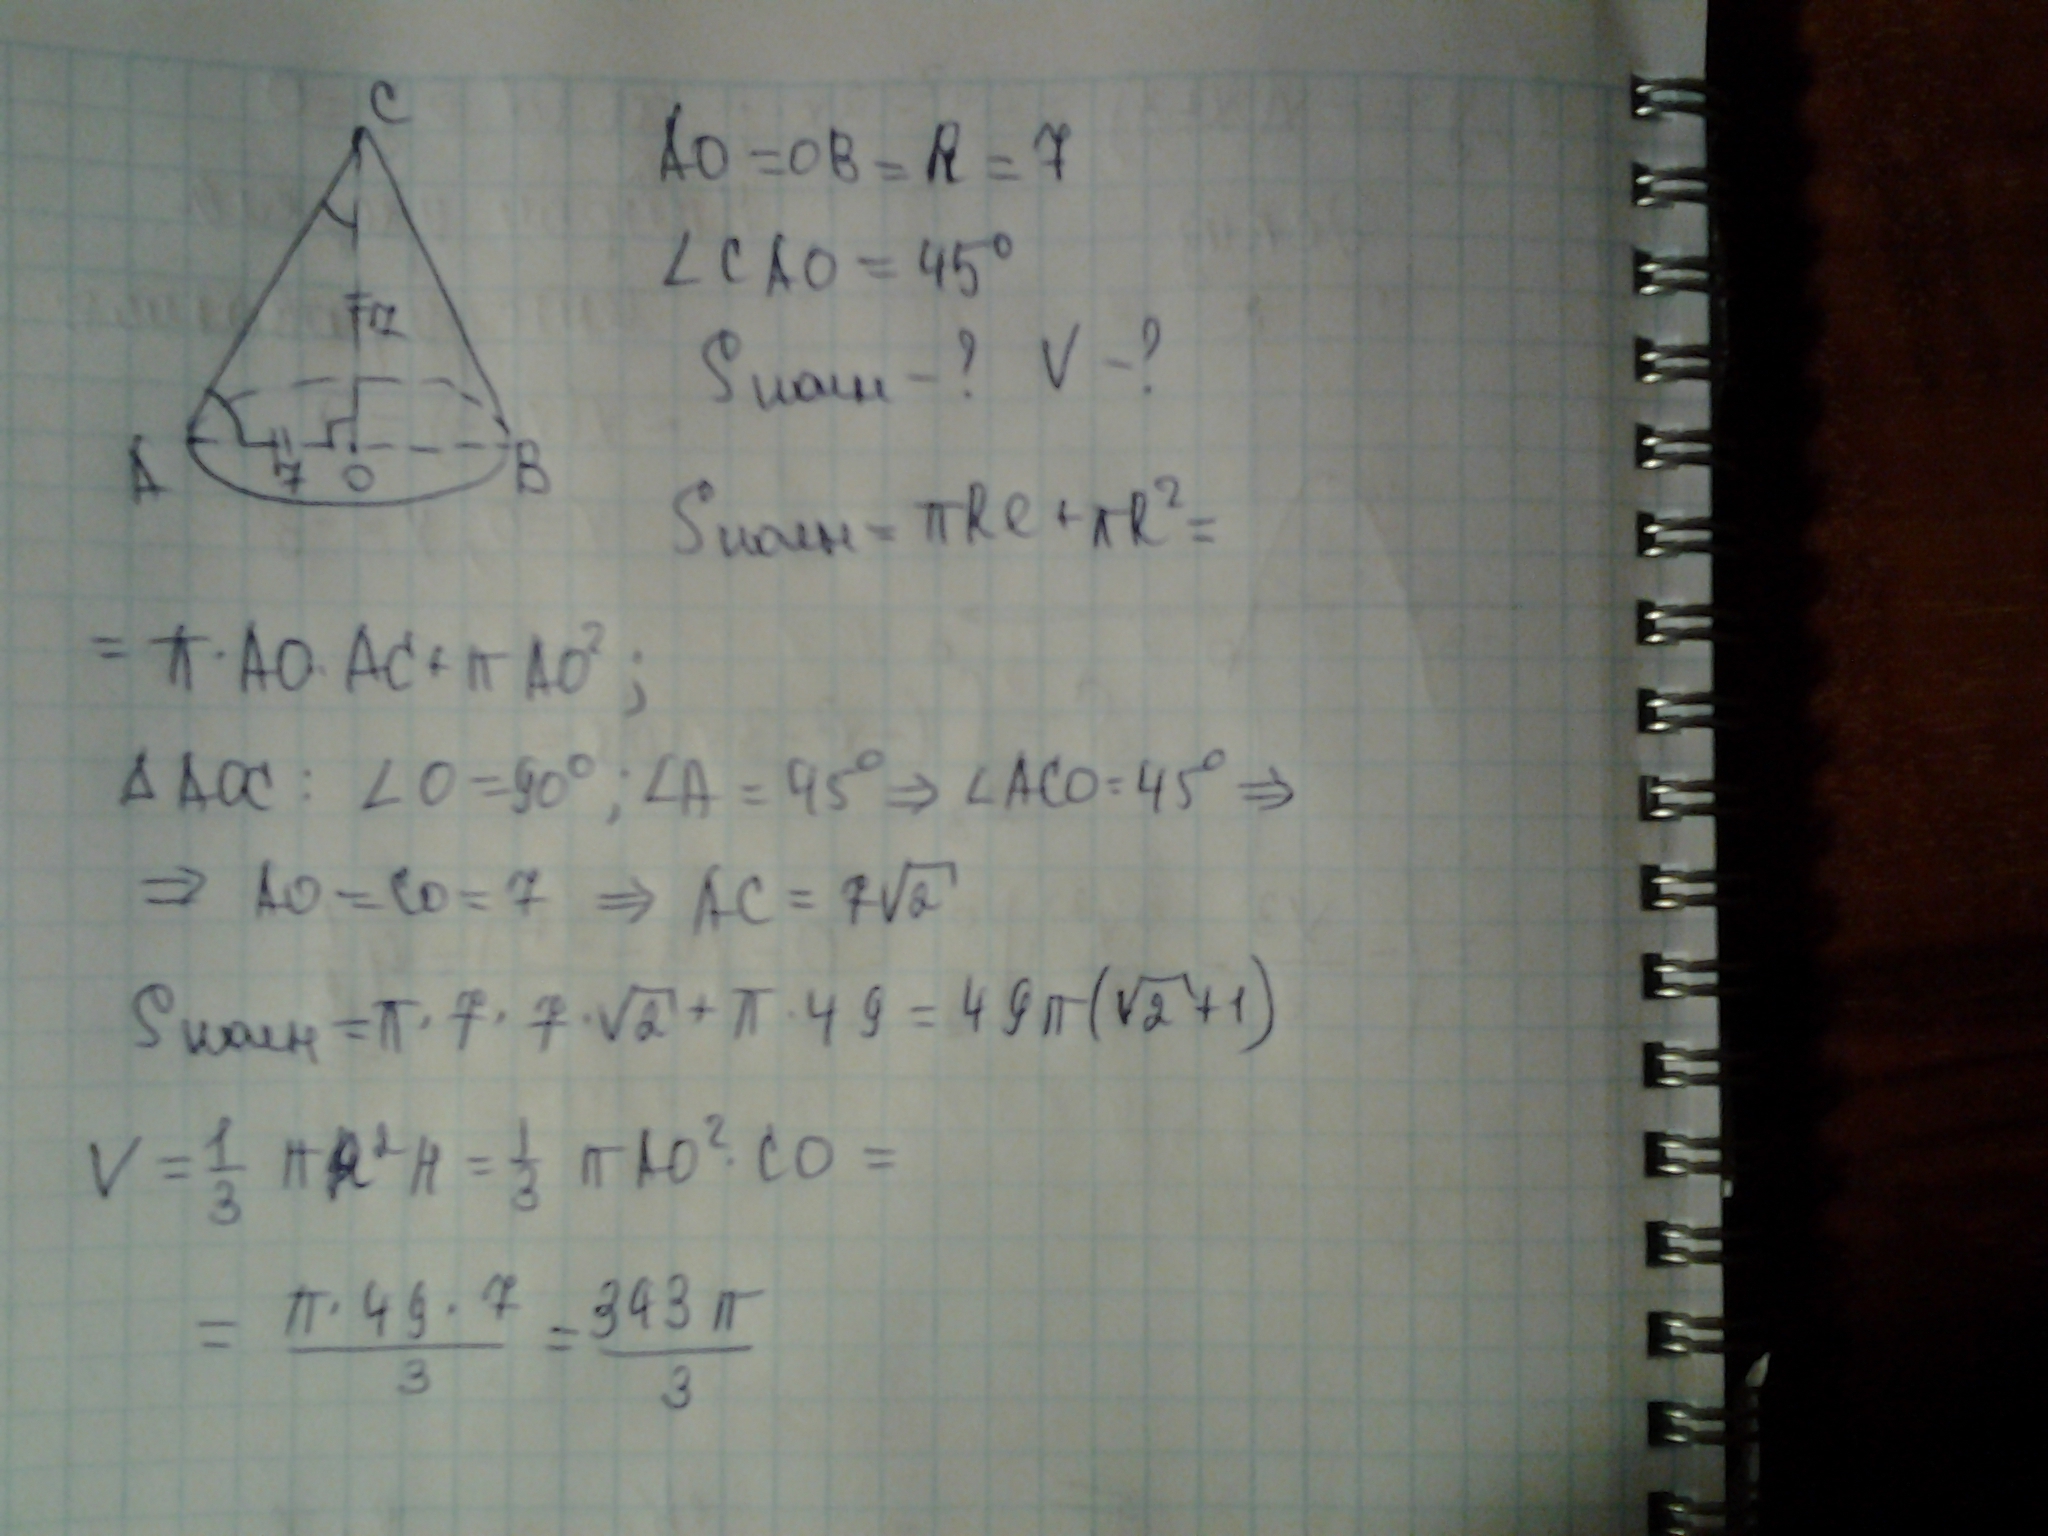 C
7
A
7
O
B
AO = OB = R = 7
∠CAO = 45°
Sполн - ? V - ?
Sполн = πRl + πR² =
= π·AO·AC + πAO²;
ΔAOC: ∠O = 90°; ∠A = 45° ⇒ ∠ACO = 45° ⇒
⇒ AO = CO = 7 ⇒ AC = 7√2
Sполн = π·7·7·√2 + π·49 = 49π(√2 + 1)
V = 1/3 πR²H = 1/3 πAO²·CO =
= π·49·7/3 = 343π/3